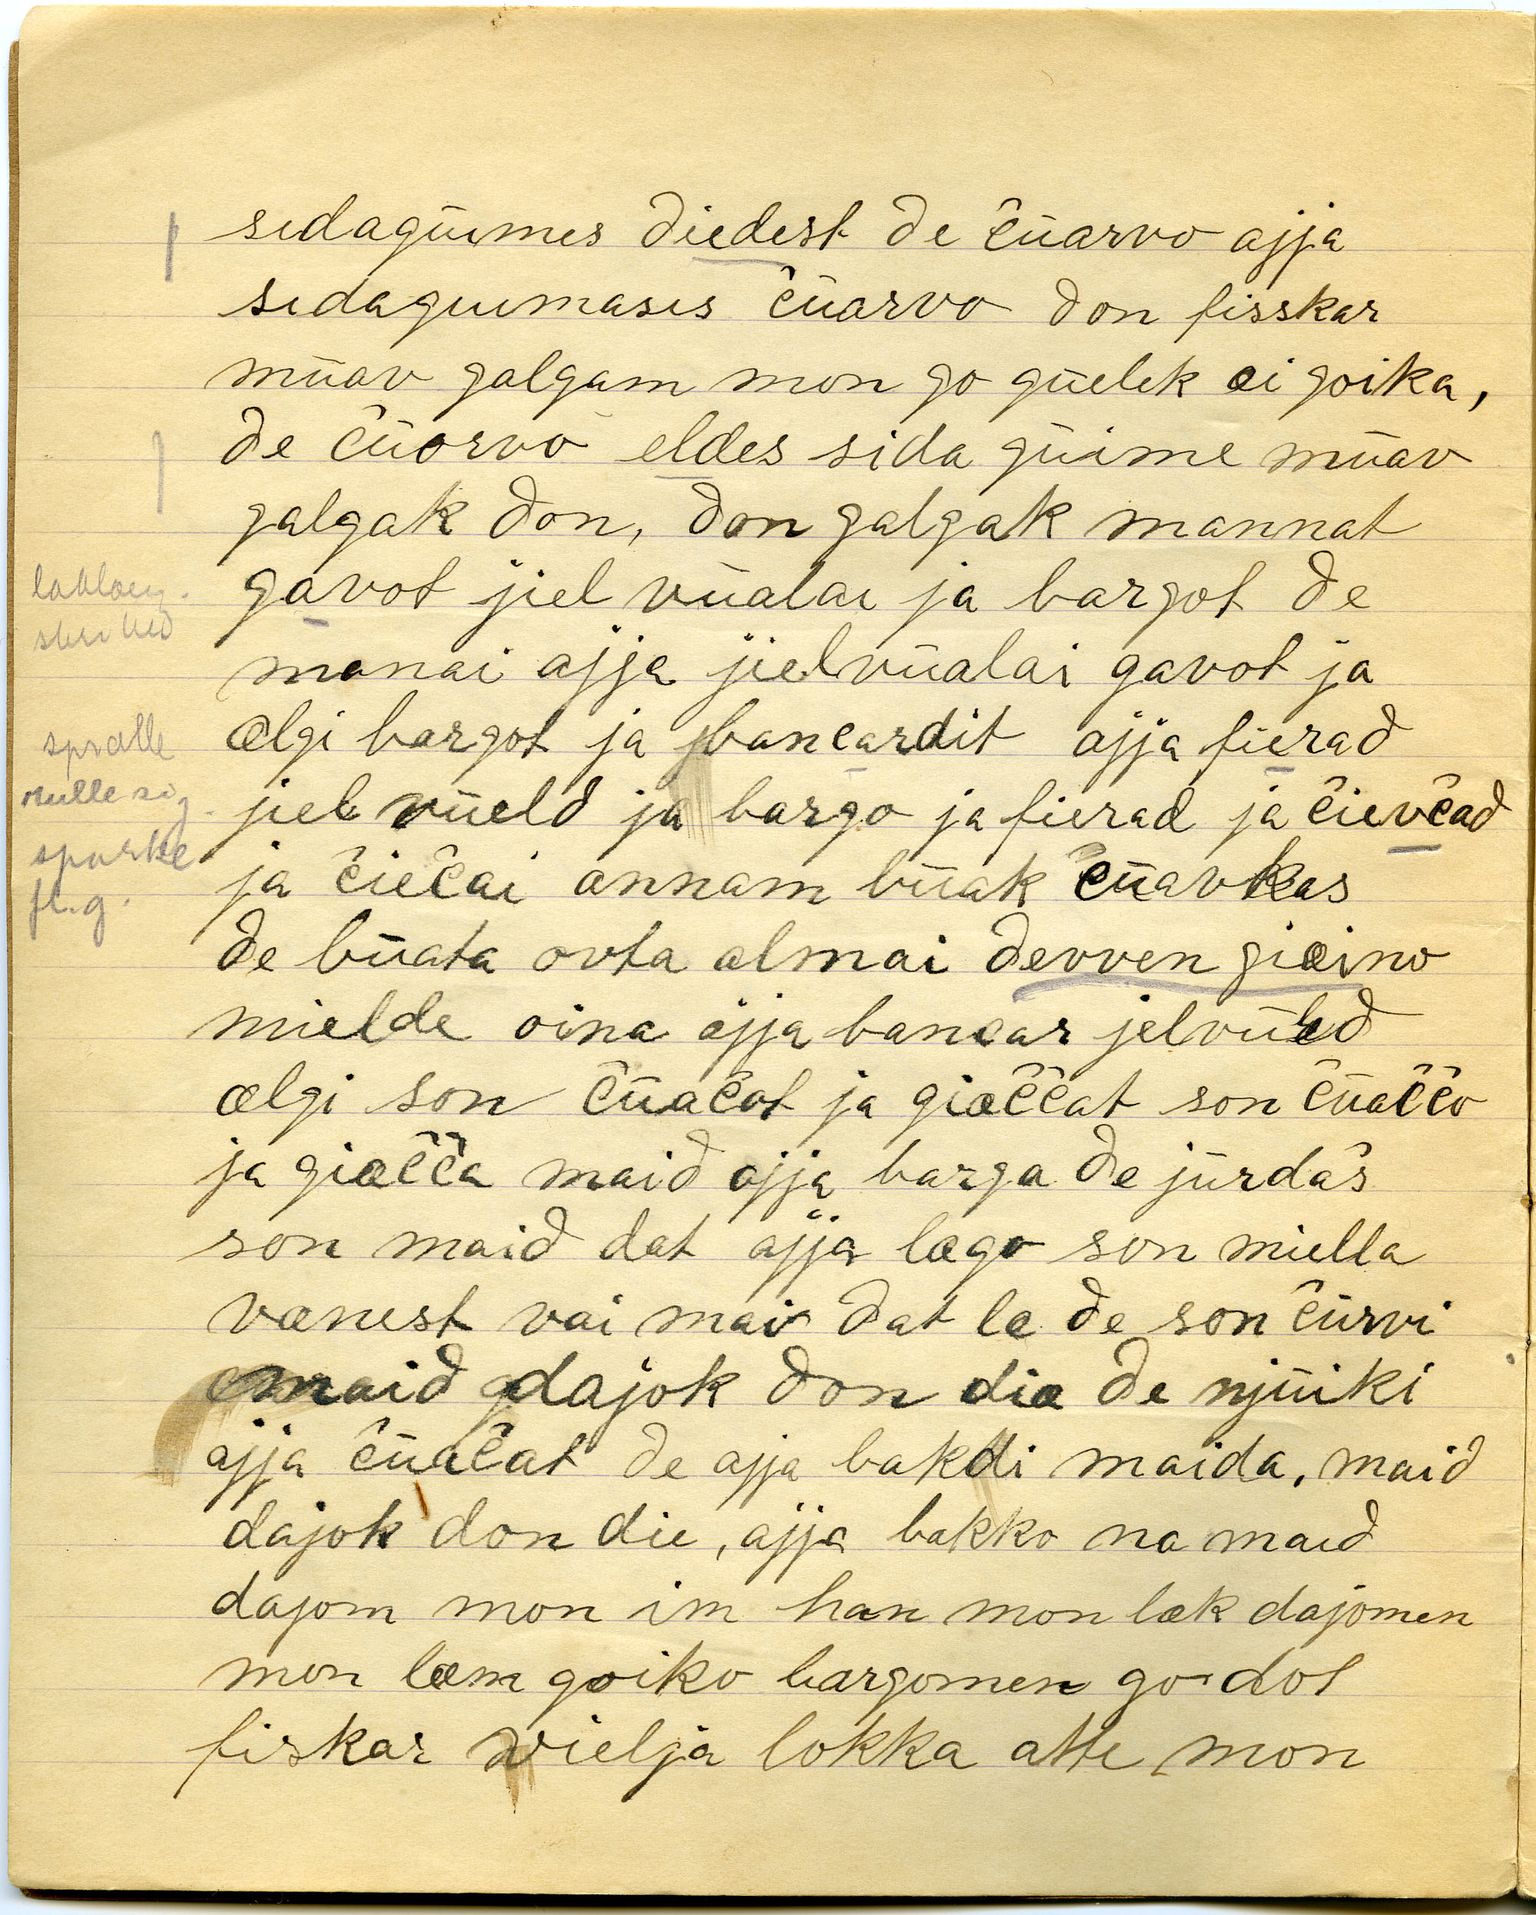 sidagüimes diedest de čüarvo ajja
sidaguimasis čüarvo don fisskar
müav galgam mon go güelek æi goika,
de čüorvo eldes sida güime müav
galgak don, don galgak mannat
gavot jiel vüalai ja bargot de
manai ajja jielvüalai gavot ja
ælgi bargot ja bancardit ajja fierad
spralle
jiel vüeld ja bargo ja fierad ja čievčad
rulle sig
sparke
ja čiečai annam büak čüavkas
fl.g.
de büata ovta almai devven giæino
mielde oina ajja bancar jelvüled
ælgi son čüačot ja giæččat son čüaččo
ja giæčča maid ajja barga de jürdaš
son maid dat ajja lægo son miella
vænest vai mai dat le de son čürvi
maid dajok don die de njüiki
ajja čüačat de ajja bakdi maida, maid
dajok don die, ajja bakko na maid
dajom mon im han mon læk dajomen
mon læm goiko bargomen go dot
fiskar vielja lokka atte mon